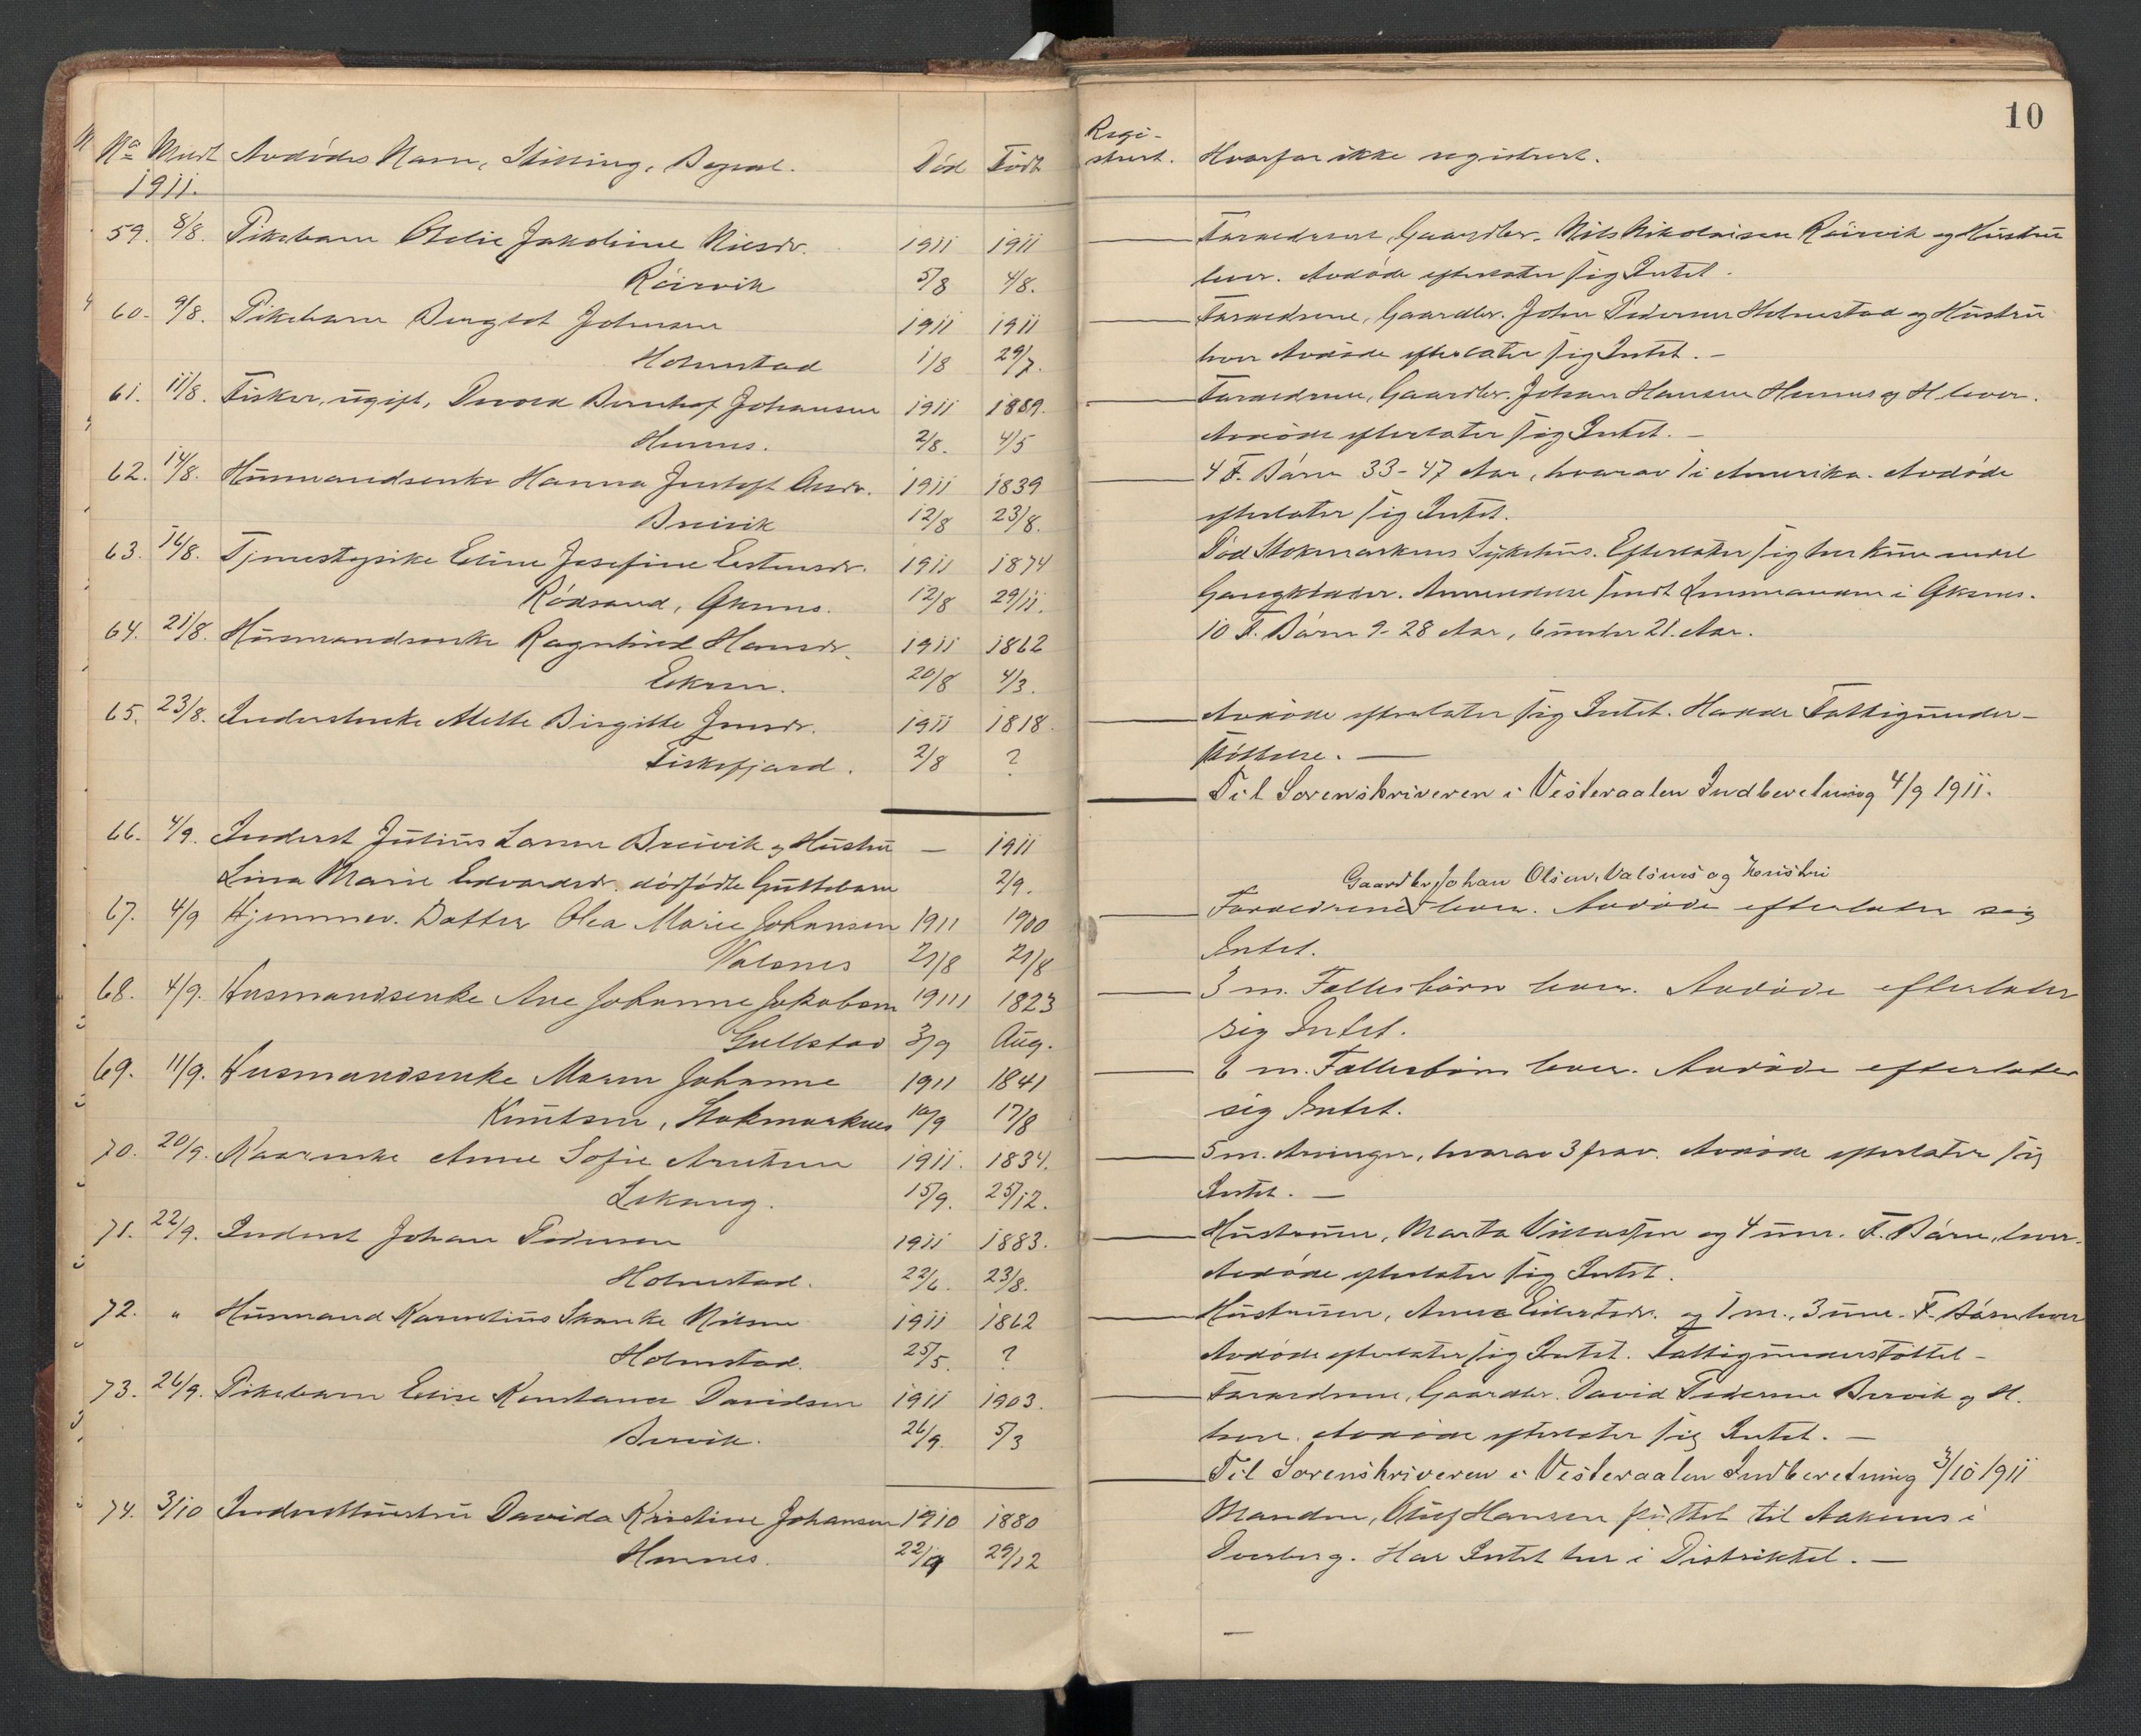 10
No Meldt Avdødes Navn, Stilling, Bopæl. Død Født
1911.
Regi-
strert. Hvorfor ikke registrert.
59. 8/8. Pikebarn Otelie Jakobine Nilsdr. 1911 1911
Røirvik 5/8 4/8.
Forældrene, Gaardbr. Nils Nikolaisen Røirvik og Hustru
lever. Avdøde efterlater sig Intet.
60. 9/8. Pikebarn Bergljot Johnsen 1911 1911
Holmstad 1/8 29/7.
Forældrene, Gaardbr. John Pedersen Holmstad og Hustru
lever Avdøde efterlater sig Intet. –
61. 11/8. Fisker, ugift, Bernhof Johansen 1911 1889.
Hennes. 2/8. 4/5
Forældrene, Gaardbr. Johan Hansen Hennes og H. lever.
Avdøde efterlater sig Intet. –
62. 14/8. Husmandsenke Hanna Andr. 1911 1839
Breivik 12/8 23/8.
4 F. Børn 33-47 Aar, hvorav 1 i Amerika. Avdøde
efterlater sig Intet.
63. 16/8. Tjenestepike Eline Josefine Estensdr. 1911 1874
Rødsand, Øksnes. 12/8 29/11.
Død Stokmarknes Sykehus. Efterlater sig her kun endel
Gangklæder. Anmeldelse sendt Lensmanden i Øksnes.
64. 21/8. Husmandsenke Ragnhild Hansdr. 1911 1862
Eikren. 20/8 4/3.
10 F. Børn 9-28 Aar, 6 under 21. Aar.
65. 23/8. Inderstenke Mette Birgitte Jensdr. 1911 1818.
Fiskfjord. 2/8 ?
Avdøde efterlater sig Intet. Havde Fattigunder-
støttelse. –
Til Sorenskriveren i Vesteraalen Indberetning 4/9 1911.
66. 4/9. Inderst Julius Larsen Breivik og Hustru – 1911
Lina Marie Edvardsdr. dødfødte Guttebarn 2/9.
67. 4/9 Hjemmev. Datter Olea Marie Johansen 1911 1900
Valsnes 21/8 21/8
Gaardbr. Johan Olsen, Valsnes og Hustru
Forældrene lever. Avdøde efterlater sig
Intet.
68. 4/9. Husmandsenke Ane Johanne Jakobsen 1911 1823
Gullstad 3/9 Aug.
3 m. Fællesbørn lever. Avdøde efterlater
sig Intet.
69. 11/9. Husmandsenke Maren Johanne 1911 1841
Knutsen, Stokmarknes 10/9 17/8
6 m. Fællesbørn lever. Avdøde efterlater
sig Intet.
70. 20/9. Kaarenke Anne Sofie Arntsen 1911. 1834.
Lekang. 15/9. 25/12.
5 m. Arvinger, hvorav 3 frav. Avdøde efterlater sig
Intet. –
71. 22/9. Inderst Johan Pedersen 1911 1883.
Holmstad. 22/6. 23/8.
Hustruen, Marta og 4 um. F. Børn, lever.
Avdøde efterlater sig Intet.
72. " Husmand Kornelius Skanke Nilsen 1911 1862
Holmstad. 25/5. ?
Hustruen, Anna Eilertsdr. og 1 m., 3 um. F. Børn lever
Avdøde efterlater sig Intet. Fattigunderstøttet –
73. 26/9. Pikebarn Elise Konstance Davidsen 1911 1903.
Bervik. 26/9. 5/3
Forældrene, Gaardbr. David Pedersen Bervik og H.
lever. Avdøde efterlater sig Intet. –
Til Sorenskriveren i Vesteraalen Indberetning 3/10 1911
74. 3/10 Inderst Hustru Davida Kristine Johansen 1910 1880
Hennes. 22/9 29/12
Manden, Oluf Hansen flyttet til Aaknes i
Dverberg. Har Intet her i Distriktet. –